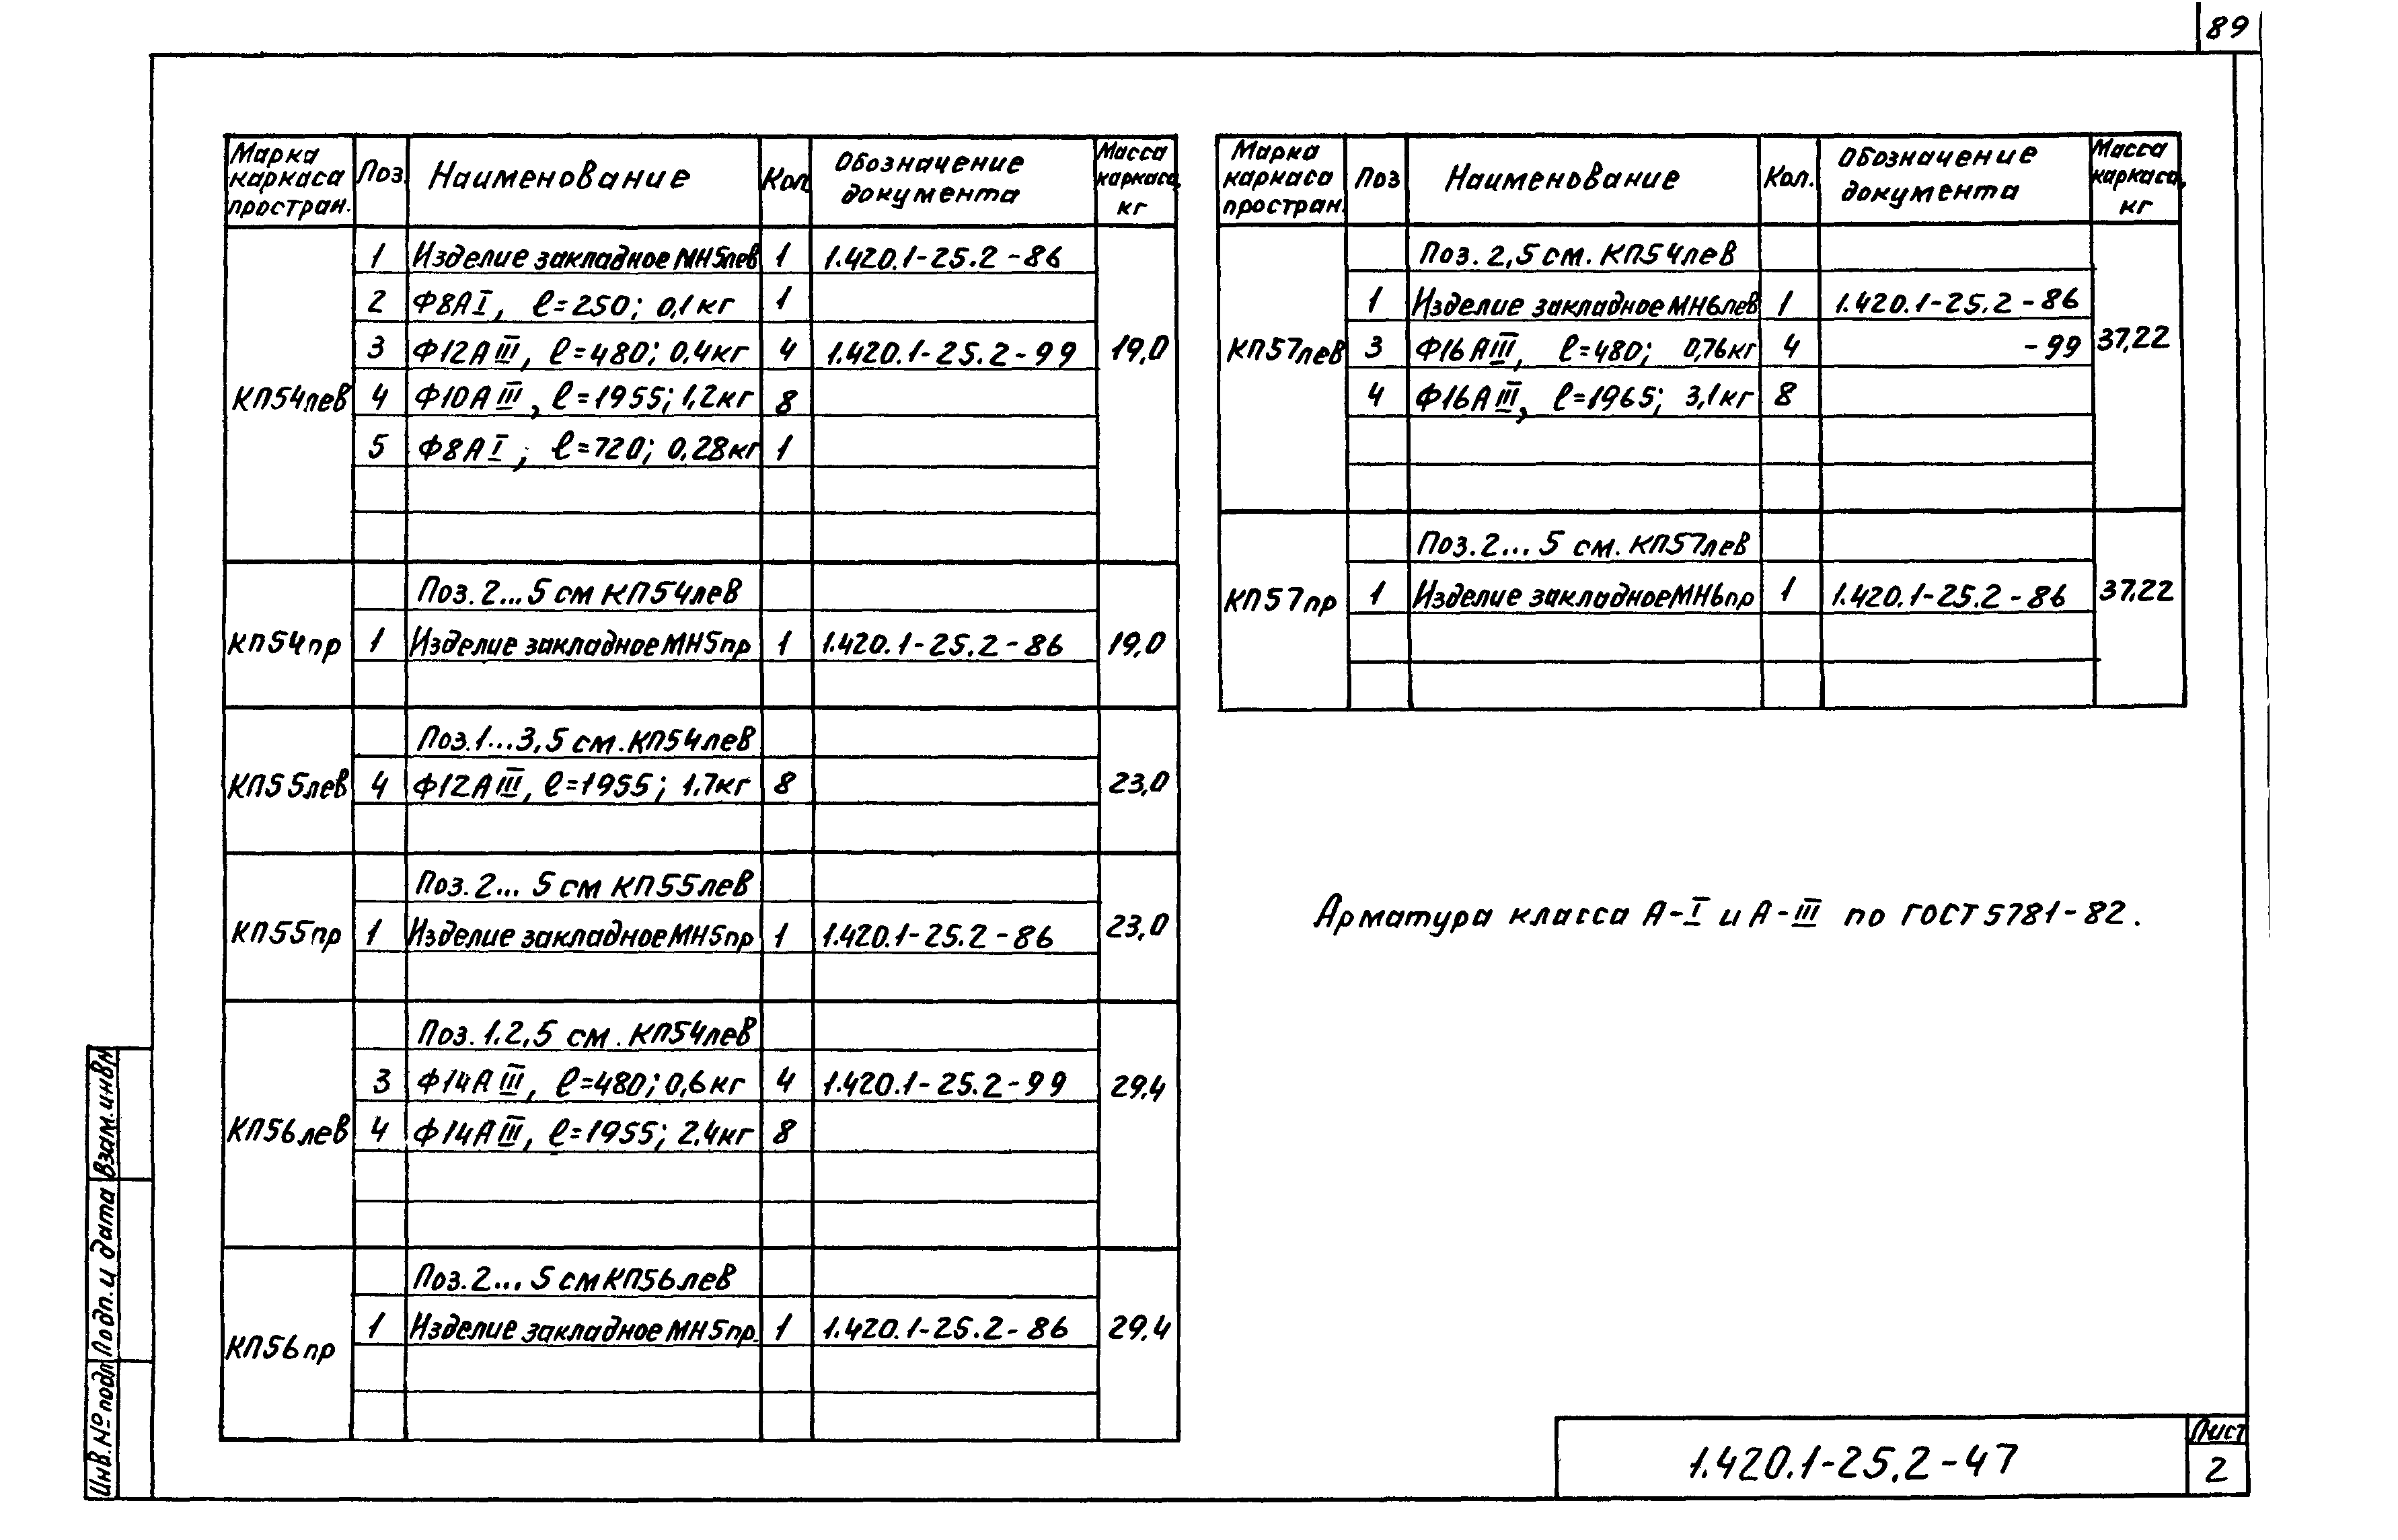 89
Марка каркаса простран. Поз. Наименование Кол. Обозначение документа Масса каркаса, кг
КП54лев 19,0
1 Изделие закладное МН5лев 1 1.420.1-25.2-86
2 Ф8АI, ℓ=250; 0,1кг 1
3 Ф12АIII, ℓ=480; 0.4кг 4 1.420.1-25.2-99
4 Ф10АIII, ℓ=1955; 1,2кг 8
5 Ф8АI, ℓ=720; 0,28кг 1
КП54пр 19,0
Поз. 2...5 см КП54лев
1 Изделие закладное МН5пр 1 1.420.1-25.2-86
КП55лев 23,0
Поз.1...3,5 см. КП54лев
4 Ф12АIII, ℓ=1955; 1.7кг 8
КП55пр 23,0
Поз. 2...5 см КП55лев
1 Изделие закладное МН5пр 1 1.420.1-25.2-86
КП56лев 29,4
Поз. 1.2,5 см. КП54лев
3 Ф14АIII, ℓ=480; 0,6кг 4 1.420.1-25.2-99
4 Ф14АIII, ℓ=1955; 2.4кг 8
КП56пр 29,4
Поз. 2...5 см КП56лев
1 Изделие закладное МН5пр. 1 1.420.1-25.2-86
Марка каркаса простран. Поз Наименование Кол. Обозначение документа Масса каркаса, кг
КП57лев 37,22
Поз. 2,5 см. КП54лев
1 Изделие закладное МН6лев 1 1.420.1-25.2-86
3 Ф16АIII, ℓ=480; 0,76кг 4 -99
4 Ф16АIII, ℓ=1965; 3,1кг 8
КП57пр 37,22
Поз. 2...5 см. КП57лев
1 Изделие закладное МН6пр 1 1.420.1-25.2-86
Арматура класса А-I и А-III по ГОСТ 5781-82.
Взам.инв№
Подп. и дата
Инв.№ подл
1.420.1-25.2-47
Лист
2